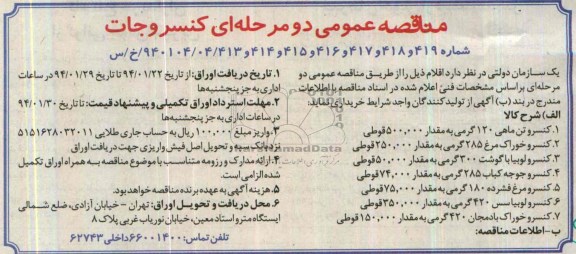 مناقصه عمومی دو مرحله‌ای کنسروجات
شماره ۴۱۹ و ۴۱۸ و ۴۱۷ و ۴۱۶ و ۴۱۵ و ۴۱۴ و ۹۴۰۱۰۴/۰۴/۴۱۳/خ/س
یک سازمان دولتی در نظر دارد اقلام ذیل را از طریق مناقصه عمومی دو
مرحله‌ای بر اساس مشخصات فنی اعلام شده در اسناد مناقصه با اطلاعات
مندرج در بند (ب) آگهی از تولیدکنندگان واجد شرایط خریداری نماید:
الف) شرح کالا
۱. کنسرو تن ماهی ۱۲۰ گرمی به مقدار ۵۰۰,۰۰۰ قوطی
۲. کنسرو خوراک مرغ ۲۸۵ گرمی به مقدار ۲۵۰,۰۰۰ قوطی
۳. کنسرو لوبیا با گوشت ۳۰۰ گرمی به مقدار ۵۰,۰۰۰ قوطی
۴. کنسرو جوجه کباب ۲۸۵ گرمی به مقدار ۷۴,۰۰۰ قوطی
۵. کنسرو مرغ فشرده ۱۸۰ گرمی به مقدار ۷۵,۰۰۰ قوطی
۶. کنسرو لوبیا سس ۴۲۰ گرمی به مقدار ۳۵۰,۰۰۰ قوطی
۷. کنسرو خوراک بادمجان ۴۲۰ گرمی به مقدار ۱۵۰,۰۰۰ قوطی
ب- اطلاعات مناقصه:
۱. تاریخ دریافت اوراق: از تاریخ ۹۴/۰۱/۲۲ تا تاریخ ۹۴/۰۱/۲۹ در ساعات
اداری به جز پنجشنبه‌ها
۲. مهلت استرداد اوراق تکمیلی و پیشنهاد قیمت: تا تاریخ ۹۴/۰۱/۳۰
در ساعات اداری به جز پنجشنبه‌ها
۳. واریز مبلغ ۱۰۰,۰۰۰ ریال به حساب جاری طلایی ۵۱۵۱۶۲۸۰۳۲۰۱۱
نزد بانک سپه و تحویل اصل فیش واریزی جهت دریافت اوراق
۴. ارائه مدارک و رزومه متناسب با موضوع مناقصه به همراه اوراق تکمیل
شده الزامی است.
۵. هزینه آگهی به عهده برنده مناقصه خواهد بود.
۶. محل دریافت و تحویل اوراق: تهران - خیابان آزادی، ضلع شمالی
ایستگاه مترو استاد معین، خیابان نوریاب غربی پلاک ۸
تلفن تماس: ۶۶۰۰۱۴۰۰ داخلی ۶۲۷۴۳